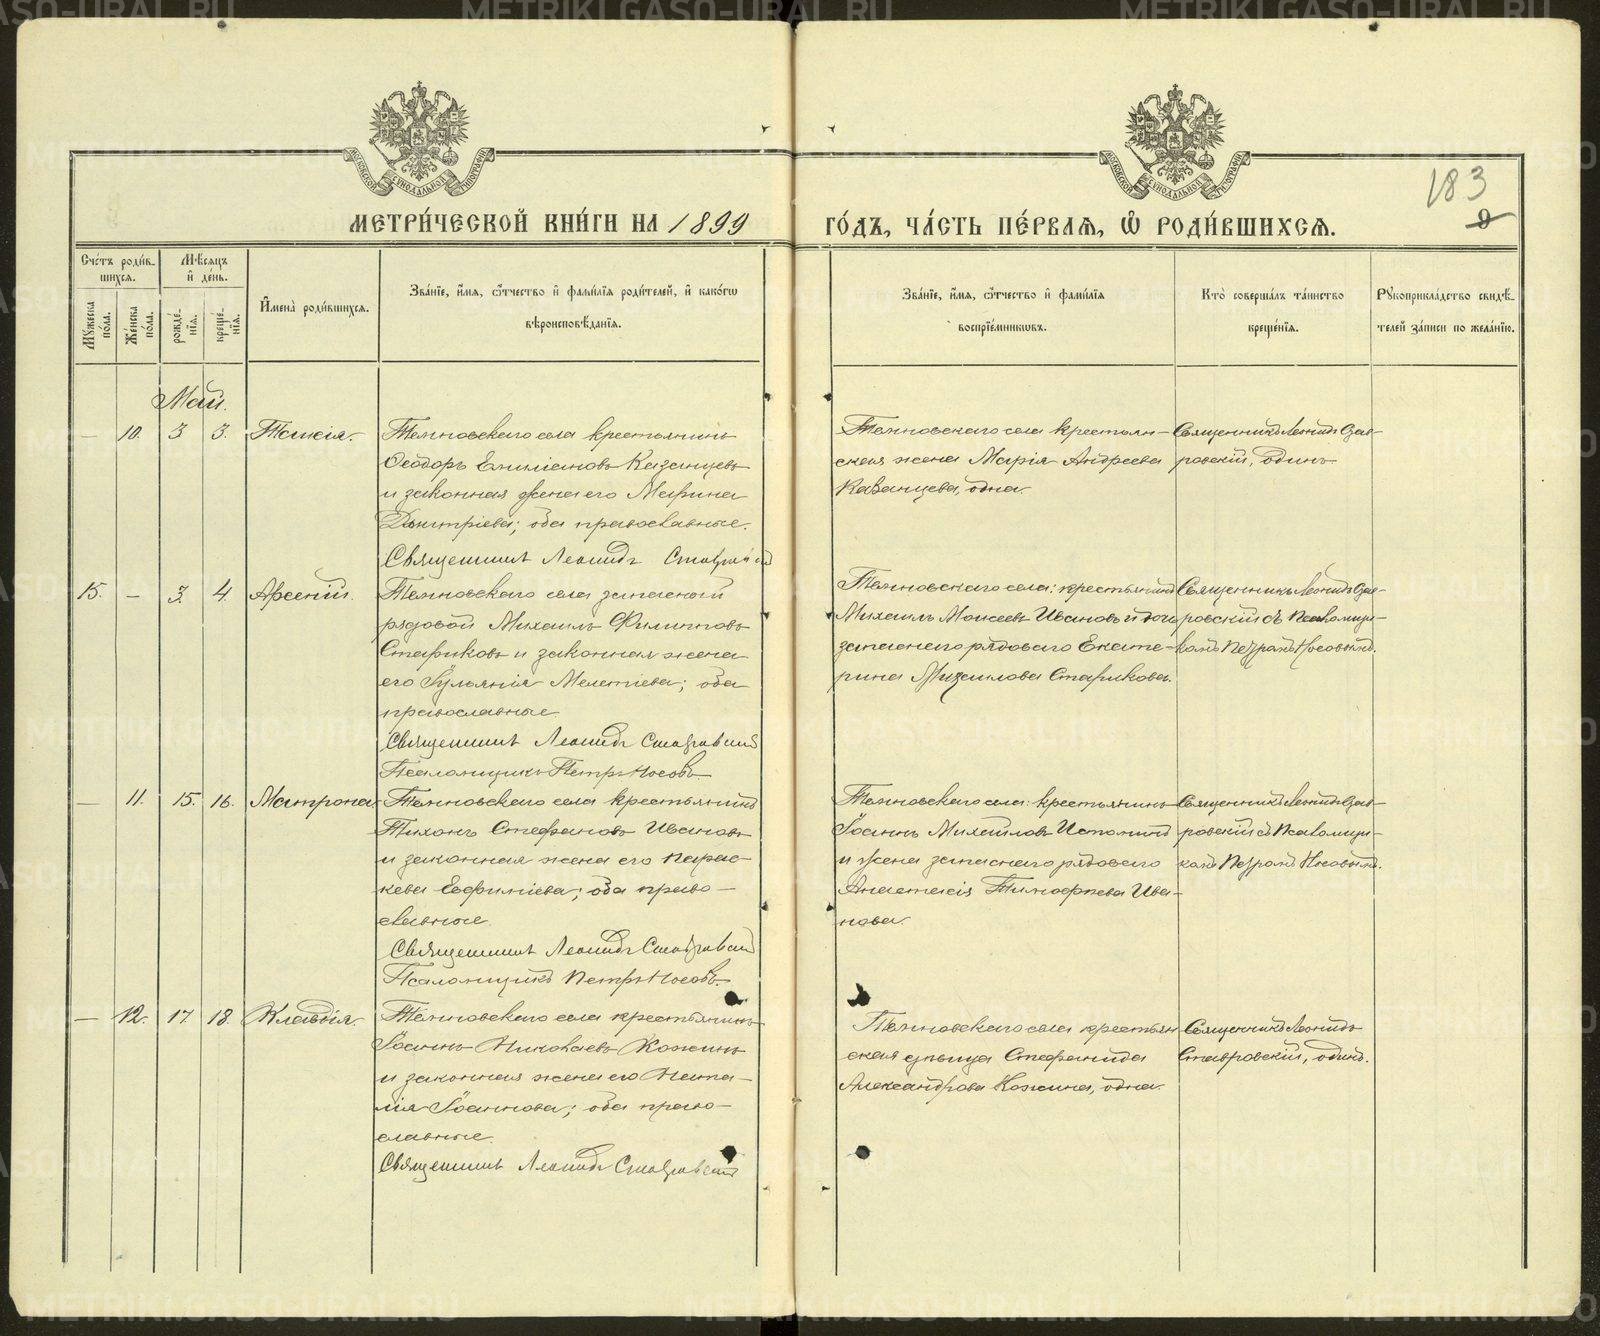 METRIKI.GASO-URAL.RU
МЕТРИ́ЧЕСКОЙ КНИ́ГИ НА 1899 ГО́ДЪ, ЧА́СТЬ ПЕ́РВАѦ, Ѿ РОДИ́ВШИХСѦ.
183
Сче́тъ роди́вшихся.
Мѣ́сяцъ и҆ де́нь.
Му́жеска по́ла.
Же́нска по́ла.
рожде́нїя.
креще́нїя.
И҆мена̀ роди́вшихся.
Зва́нїе, и҆́мя, ѻ҆́тчество и҆ фами́лїя роди́телей, и҆ како́гѡ
вѣроисповѣ́данїя.
Зва́нїе, и҆́мя, ѻ҆́тчество и҆ фами́лїя
воспрїе́мникѡвъ.
Кто̀ соверша́лъ та́инство
креще́нїя.
Рꙋкоприкла́дство свидѣ́-
телей за́писи по жела́нїю.
Май.
— 10. 3 3. Таисія.
Темновскаго села крестьянинъ
Ѳеодоръ Емиліановъ Казанцевъ
и законная жена его Марина
Димитріева; оба православные.
Священникъ Леонидъ Ставровскій
Темновскаго села крестьян-
ская жена Марія Андреева
Казанцева, одна.
Священникъ Леонидъ Став-
ровскій, одинъ.
15. — 3. 4. Арсеній.
Темновскаго села запасный
рядовой Михаилъ Филипповъ
Стариковъ и законная жена
его Іульянія Мелетіева; оба
православные.
Священникъ Леонидъ Ставровскій
Псаломщикъ Петръ Носовъ.
Темновскаго села: крестьянинъ
Михаилъ Моисеевъ Ивановъ и дочь
запаснаго рядоваго Екате-
рина Михаилова Старикова.
Священникъ Леонидъ Став-
ровскій съ Псаломщи-
комъ Петромъ Носовымъ.
— 11. 15. 16. Матрона
Темновскаго села крестьянинъ
Тихонъ Стефановъ Ивановъ
и законная жена его Парас-
кева Евфиміева; оба право-
славные.
Священникъ Леонидъ Ставровскій
Псаломщикъ Петръ Носовъ.
Темновскаго села: крестьянинъ
Іоаннъ Михайловъ Истоминъ
и жена запаснаго рядоваго
Анастасія Тимофеева Ива-
нова.
Священникъ Леонидъ Став-
ровскій съ Псаломщи-
комъ Петромъ Носовымъ.
— 12. 17 18. Клавдія.
Темновскаго села крестьянинъ
Іоаннъ Николаевъ Кожинъ
и законная жена его Ната-
лія Іоаннова; оба право-
славные.
Священникъ Леонидъ Ставровскій
Темновскаго села крестьян
ская дѣвица Стефанида
Александрова Кожина, одна.
Священникъ Леонидъ
Ставровскій, одинъ.